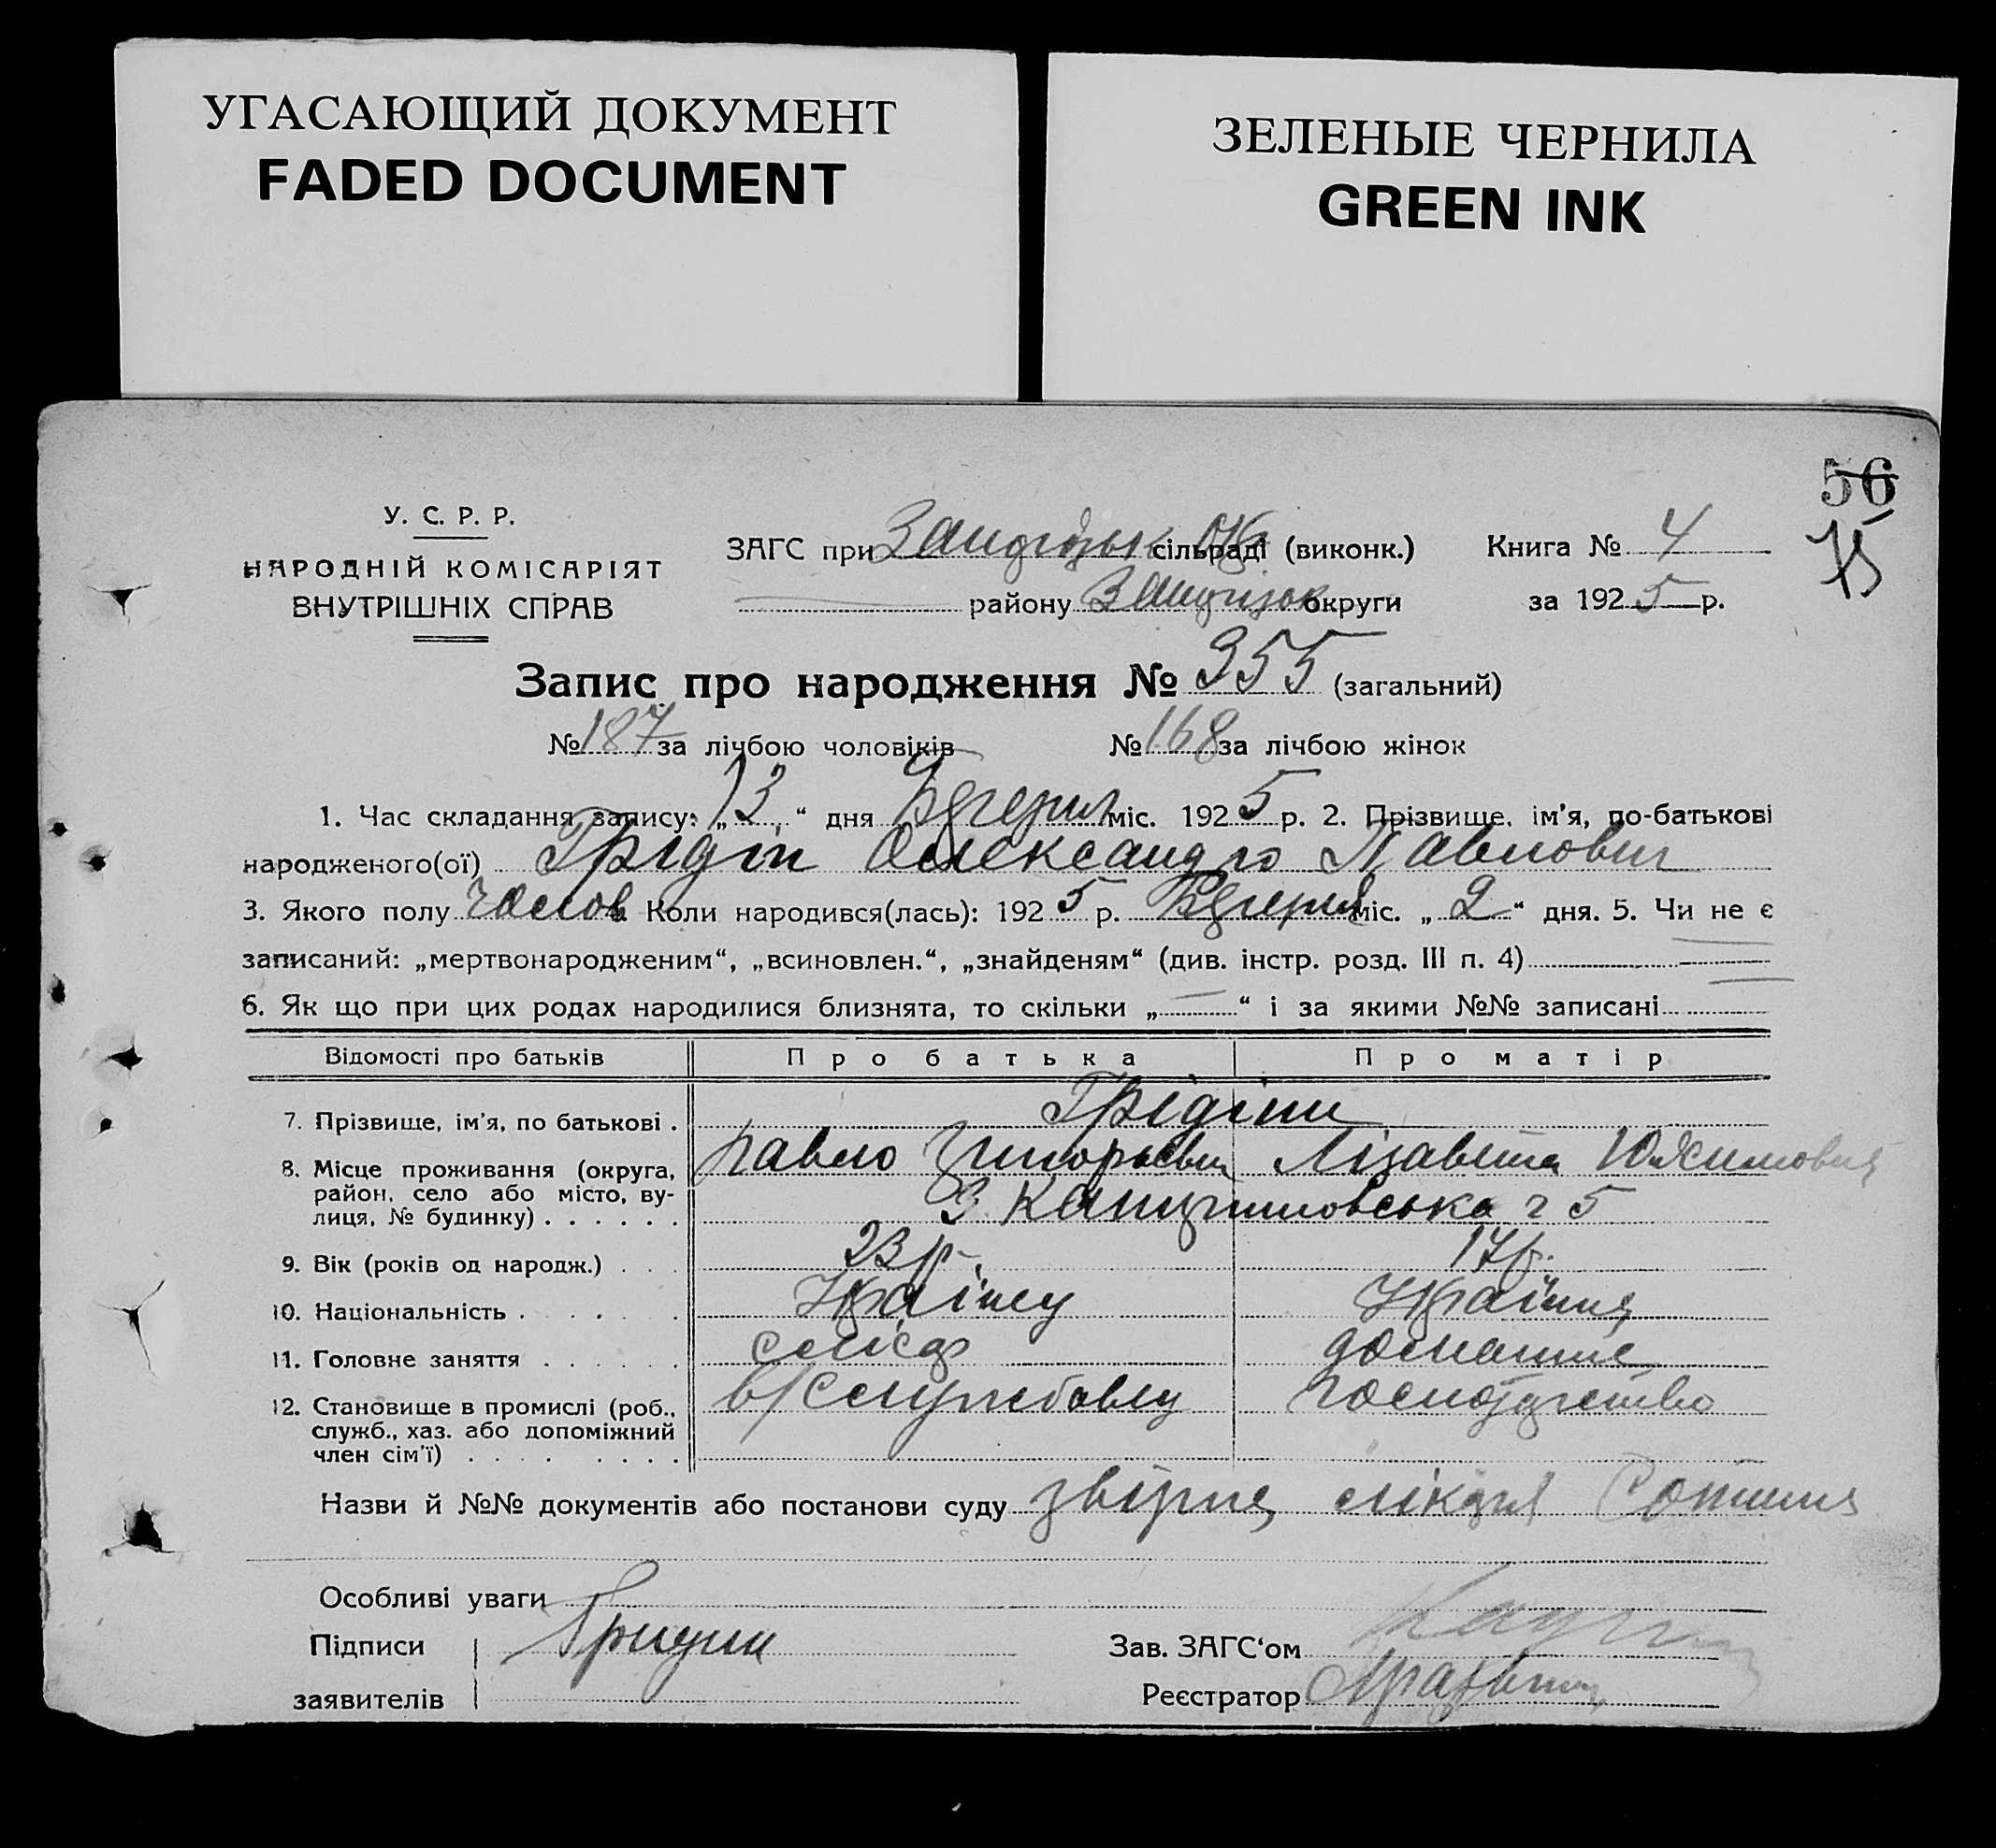 УГАСАЮЩИЙ ДОКУМЕНТ
FADED DOCUMENT
ЗЕЛЕНЫЕ ЧЕРНИЛА
GREEN INK
56
75
У. С. Р. Р.
НАРОДНІЙ КОМІСАРІЯТ
ВНУТРІШНІХ СПРАВ
ЗАГС при сільраді (виконк.)
району округи
Книга № 4
за 1925 р.
Запис про народження № 355 (загальний)
№ 187 за лічбою чоловіків № 168 за лічбою жінок
1. Час складання запису: „13“ дня міс. 1925 р. 2. Прізвище, ім'я, по-батькові
народженого(ої) Грідін Олександр Павлович
3. Якого полу чолов. Коли народився(лась): 1925 р. міс. „2“ дня. 5. Чи не є
записаний: „мертвонародженим“, „всиновлен.“, „знайденям“ (див. інстр. розд. III п. 4)
6. Як що при цих родах народилися близнята, то скільки „—“ і за якими №№ записані
Відомості про батьків Про батька Про матір
7. Прізвище, ім'я, по батькові . Грідіни
Павло Григорьевич Лізавета
8. Місце проживання (округа,
район, село або місто, ву-
лиця, № будинку) . . . . . . 5
9. Вік (років од народж.) . . . 23 р. 17 р.
10. Національність . . . . . .
11. Головне заняття . . . . . . домашне
12. Становище в промислі (роб.,
служб., хаз. або допоміжний
член сім'ї) . . . . . . . . в/службовец господарство
Назви й №№ документів або постанови суду
Особливі уваги
Підписи
заявителів
Гридин
Зав. ЗАГС'ом
Реєстратор